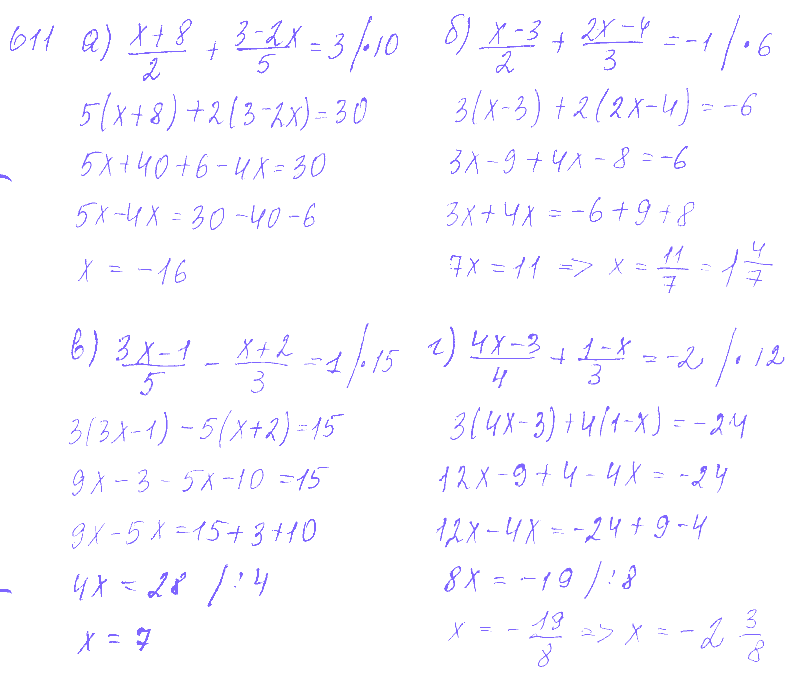 611 а) (x+8)/2 + (3-2x)/5 = 3 /·10
5(x+8)+2(3-2x)=30
5x+40+6-4x=30
5x-4x=30-40-6
x = -16
б) (x-3)/2 + (2x-4)/3 = -1 /·6
3(x-3)+2(2x-4)=-6
3x-9+4x-8=-6
3x+4x=-6+9+8
7x=11 => x = 11/7 = 1 4/7
в) (3x-1)/5 - (x+2)/3 = 1 /·15
3(3x-1)-5(x+2)=15
9x-3-5x-10=15
9x-5x=15+3+10
4x = 28 /:4
x = 7
г) (4x-3)/4 + (1-x)/3 = -2 /·12
3(4x-3)+4(1-x)=-24
12x-9+4-4x=-24
12x-4x=-24+9-4
8x=-19 /:8
x = -19/8 => x = -2 3/8